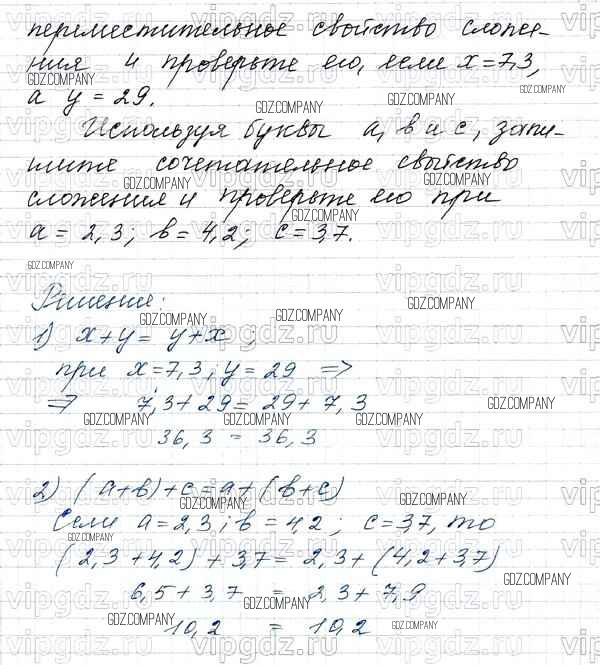 переместительное свойство сложе-
ния и проверьте его, если x=7,3,
а y = 29.
Используя буквы a, b и c, запи-
шите сочетательное свойство
сложения и проверьте его при
a = 2,3; b = 4,2; c = 3,7.
Решение:
1) x+y = y+x ;
при x=7,3; y = 29 =>
=> 7,3+29 = 29+7,3
36,3 = 36,3
2) (a+b)+c=a+(b+c)
Если a=2,3; b = 4,2; c = 3,7, то
(2,3+4,2)+3,7 = 2,3+(4,2+3,7)
6,5+3,7 = 2,3+7,9
10,2 = 10,2